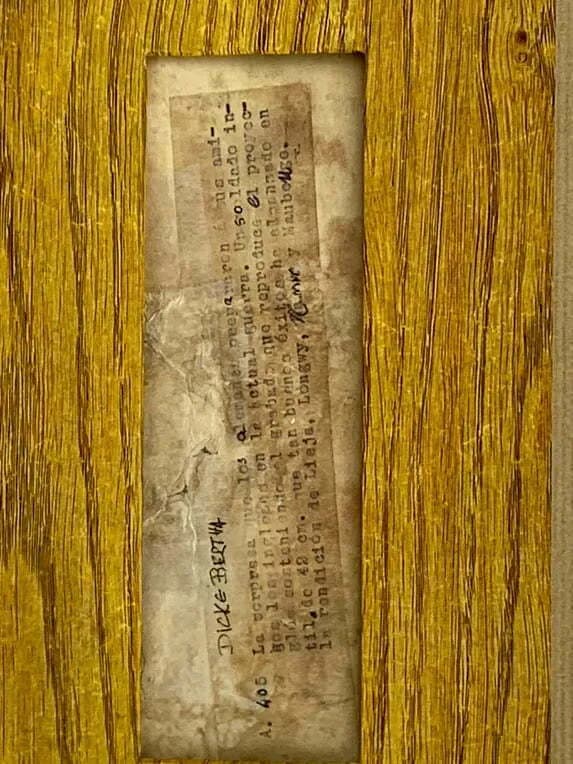 DICKE BERTHA
A. 405 La sorpresa que los alemanes prepararon á sus ami-
gos los ingleses en la actual guerra. Un soldado in-
glés sosteniendo el grabado que reproduce el proyec-
til de 42 cm. que tan buenos éxitos ha alcanzado en
la rendición de Lieja, Longwy, Namur y Maubeuge.